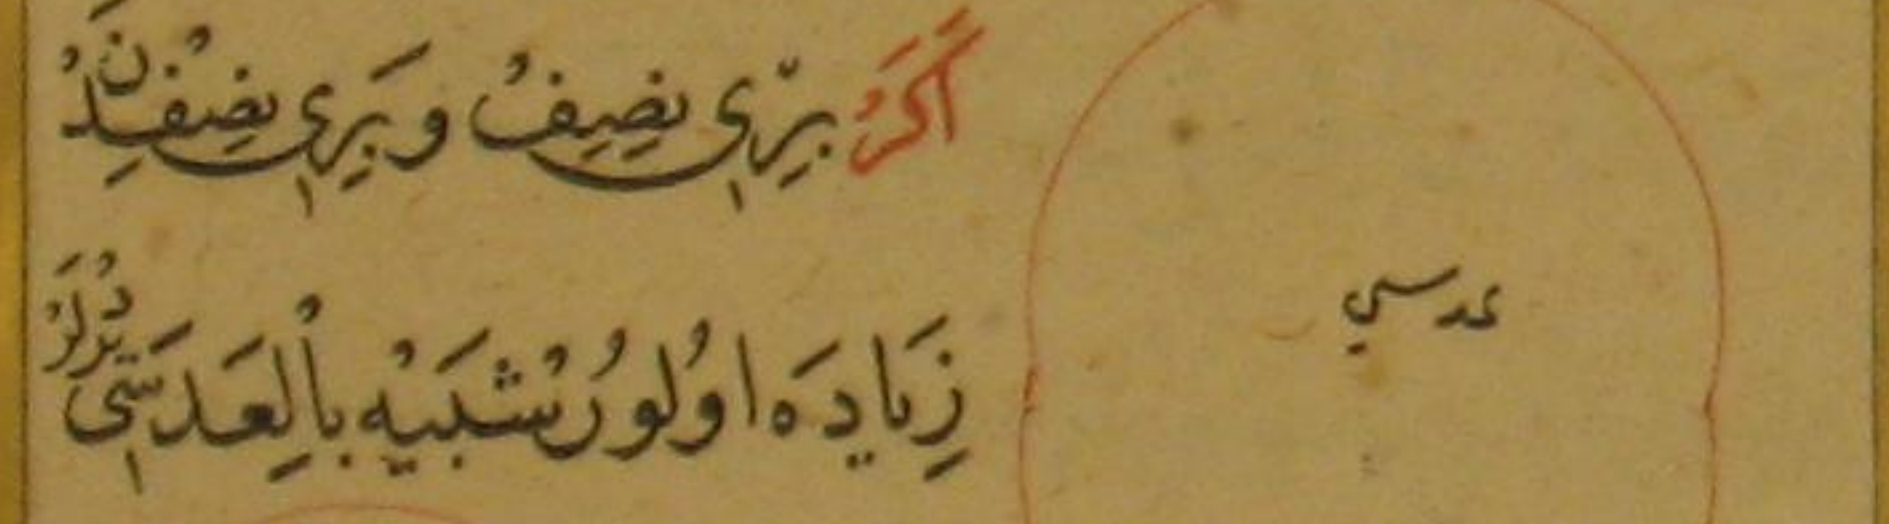 اَكَرْ بِيرّٖى نِصِيفْ وَبِيرٖى نِصِيفْدَنْ
زِيَادَه اوُلُورْسَه شَبَيْه بِالْعَدَسٖى دِرْلَرْ
عدسي